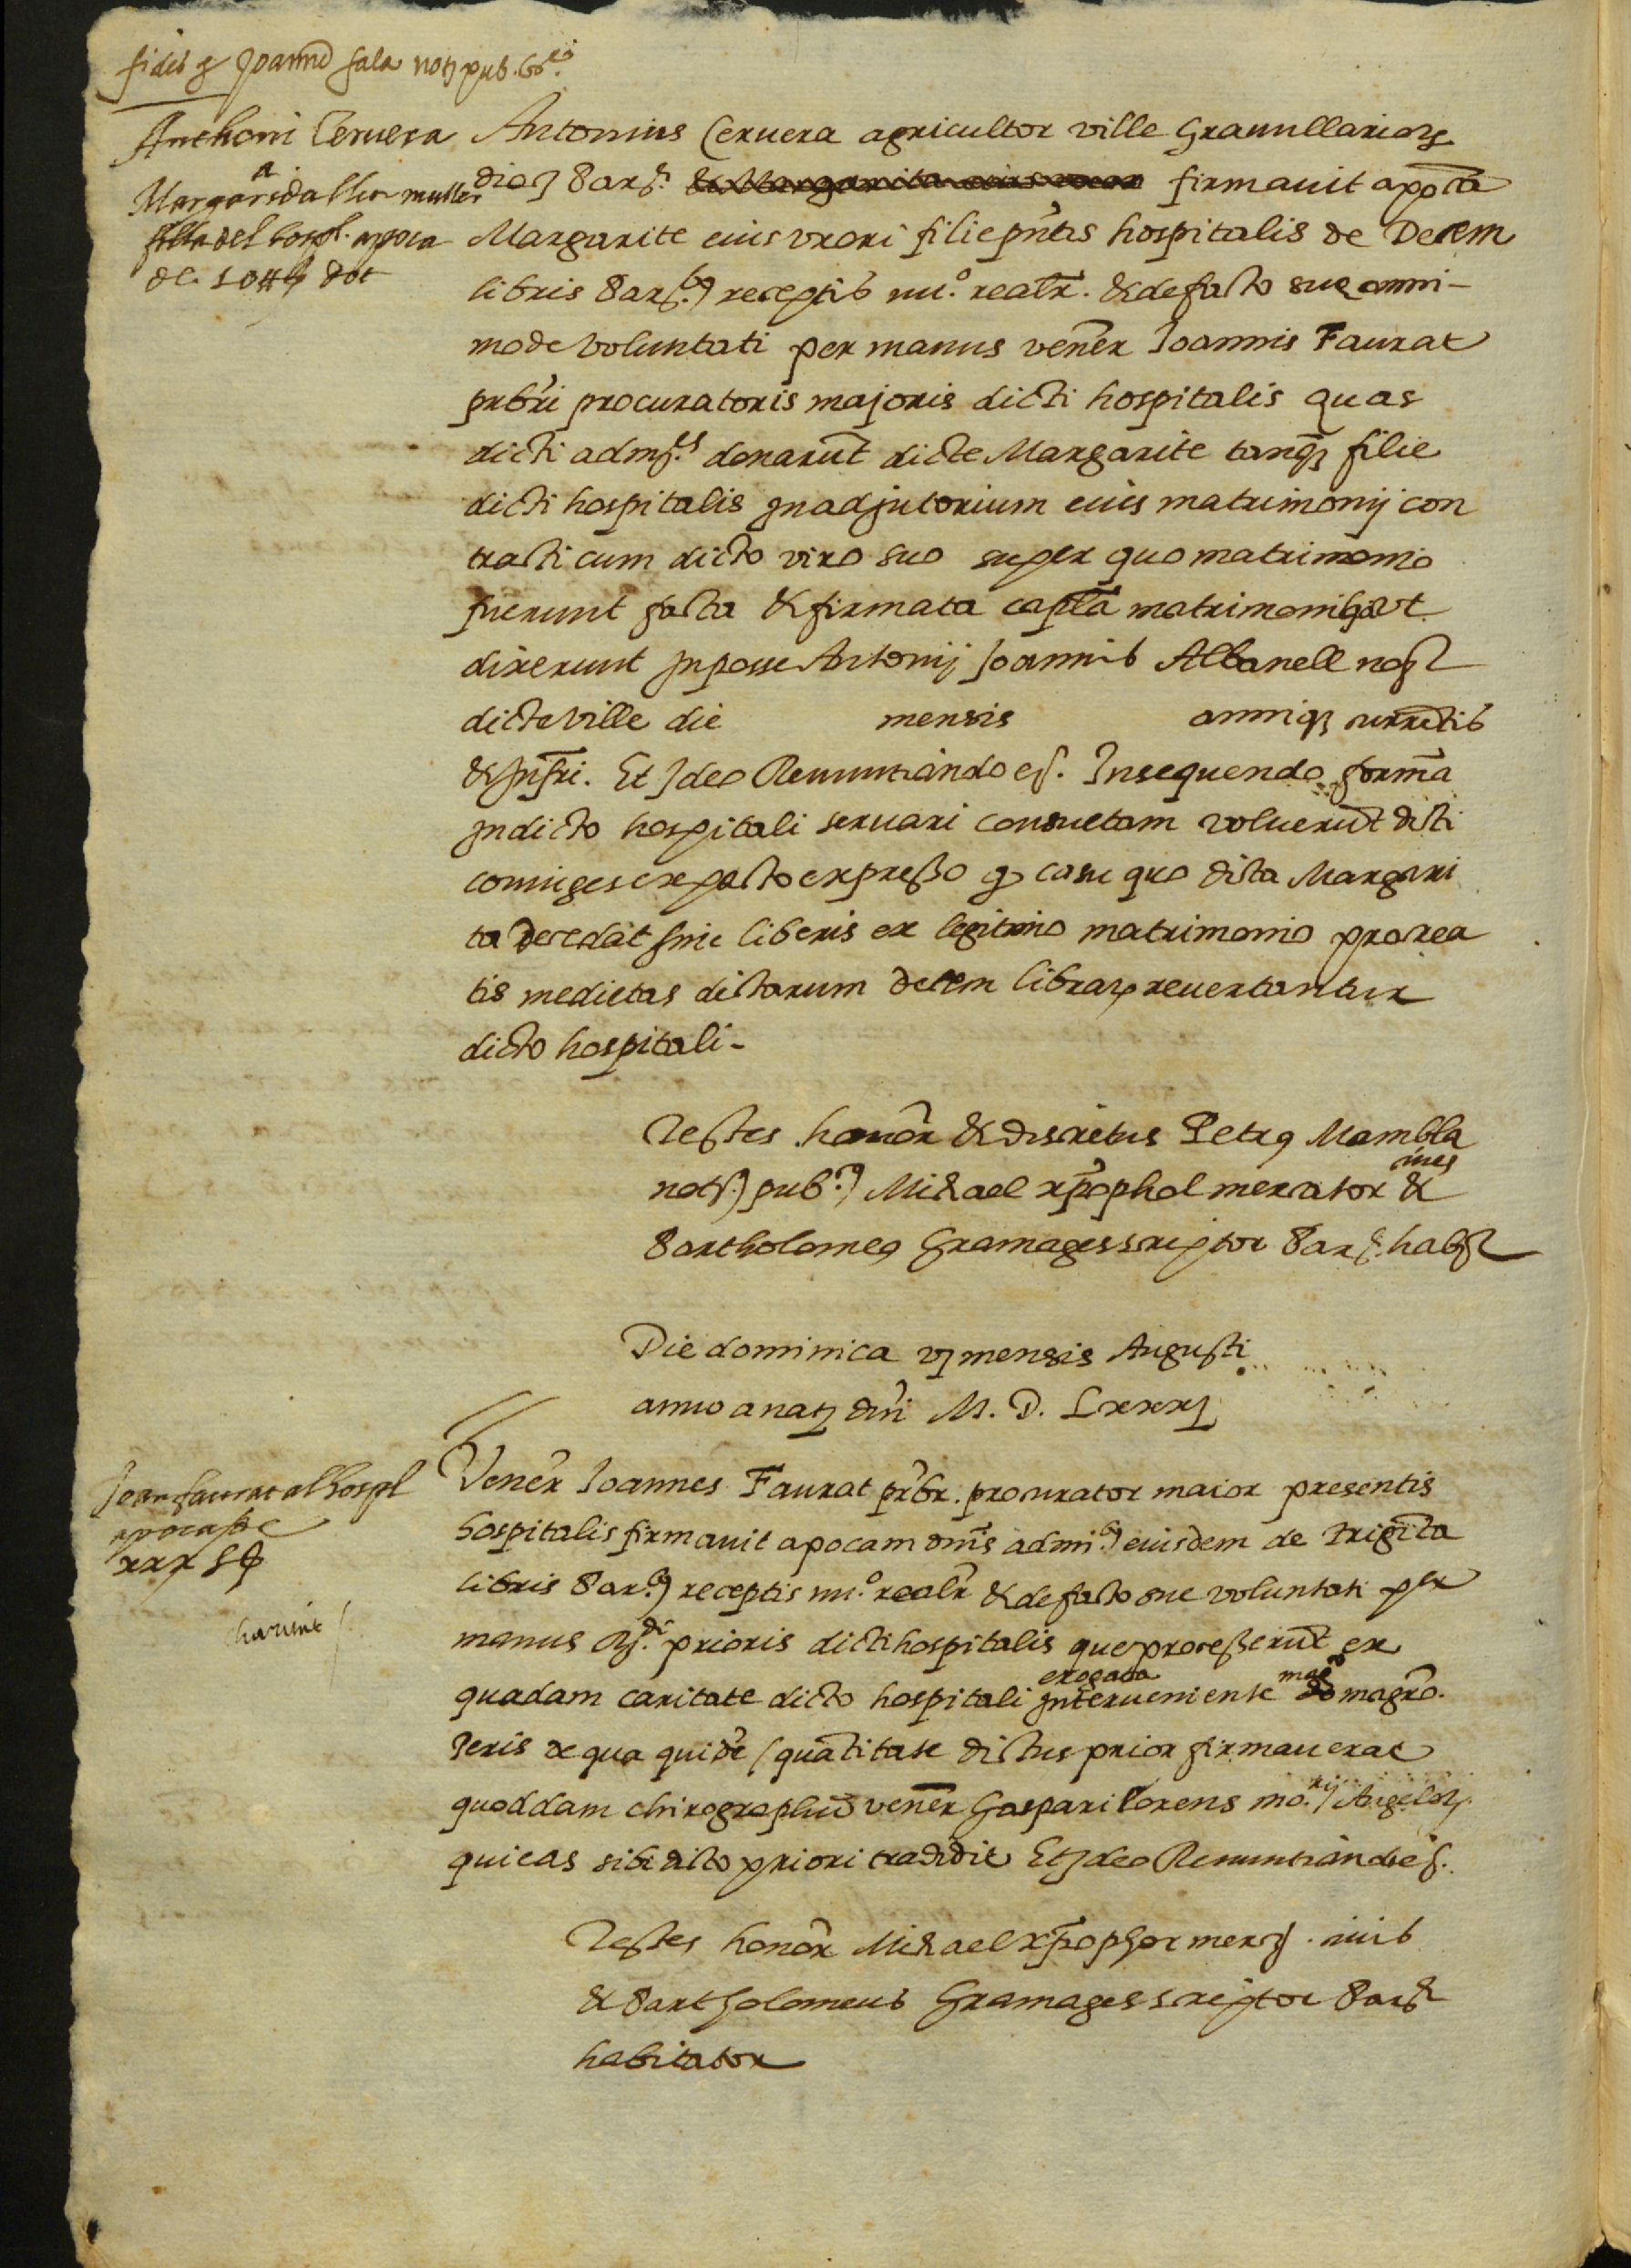 fidel g Joanne sala notz pub. bar
Anthoni Cervera
Margarida sa muller
filla del hospl. apoca
de 10 ll dot
Antonius Cervera agricultor ville Granullarioz
dioz Barz. firmavit apoca
Margarite eius uxori filie pntis hospitalis de Decem
libris Barz. receptis nu.º realr. & de facto sue omni-
mode voluntati per manus venēr Joannis Faurat
prbri procuratoris majoris dicti hospitalis quas
dicti admīs. donarūt dicte Margarite tanqz filie
dicti hospitalis jn adjutorium eius matrimonij con
tracti cum dicto viro suo super quo matrimonio
fuerunt facta & firmata capla matrimonialia ut
dixerunt jn posse Antonij Joannis Albanell not
dicte ville die mensis anniqz currētis
& jnfri. Et Jdeo Renuntiando ec. Insequendo formā
jn dicto hospitali servari consuetam voluerūt dicti
coniuges ex pacto expresso q casu quo dicta Margari
ta decedat sine liberis ex legitimo matrimonio procrea
tis medietas dictarum decem libraz revertantur
dicto hospitali-
Testes honōr & discretus Petrꝯ Mambla
notz. pub. Michael xpophol mercator cives &
Bartholomeꝯ Gramages scriptor Barz. habz
Die dominica vj mensis Augusti
anno a natz dni M. D. Lxxxj
Joan faurat al hospl
apoca de
xxx ll
Venēr Joannes Faurat prbr. procurator maior presentis
hospitalis firmavit apocam dnīs admi. eiusdem de triginta
libris Bar. receptis nu.º realr & de facto sue voluntati per
manus Rdi. prioris dicti hospitalis que processerūt ex
quadam caritate dicto hospitali erogata jnterveniente magro.
Jeris de qua quidē quātitate dictus prior firmaverat
quoddam chirographū venēr Gaspari Lorens mo. Angeloz.
qui eas sibi dicto priori tradidit Et Jdeo Renuntiando ec.
Testes honōr Michael xpophor merz. civis
& Bartholomeus Gramages scriptor Barz
habitator